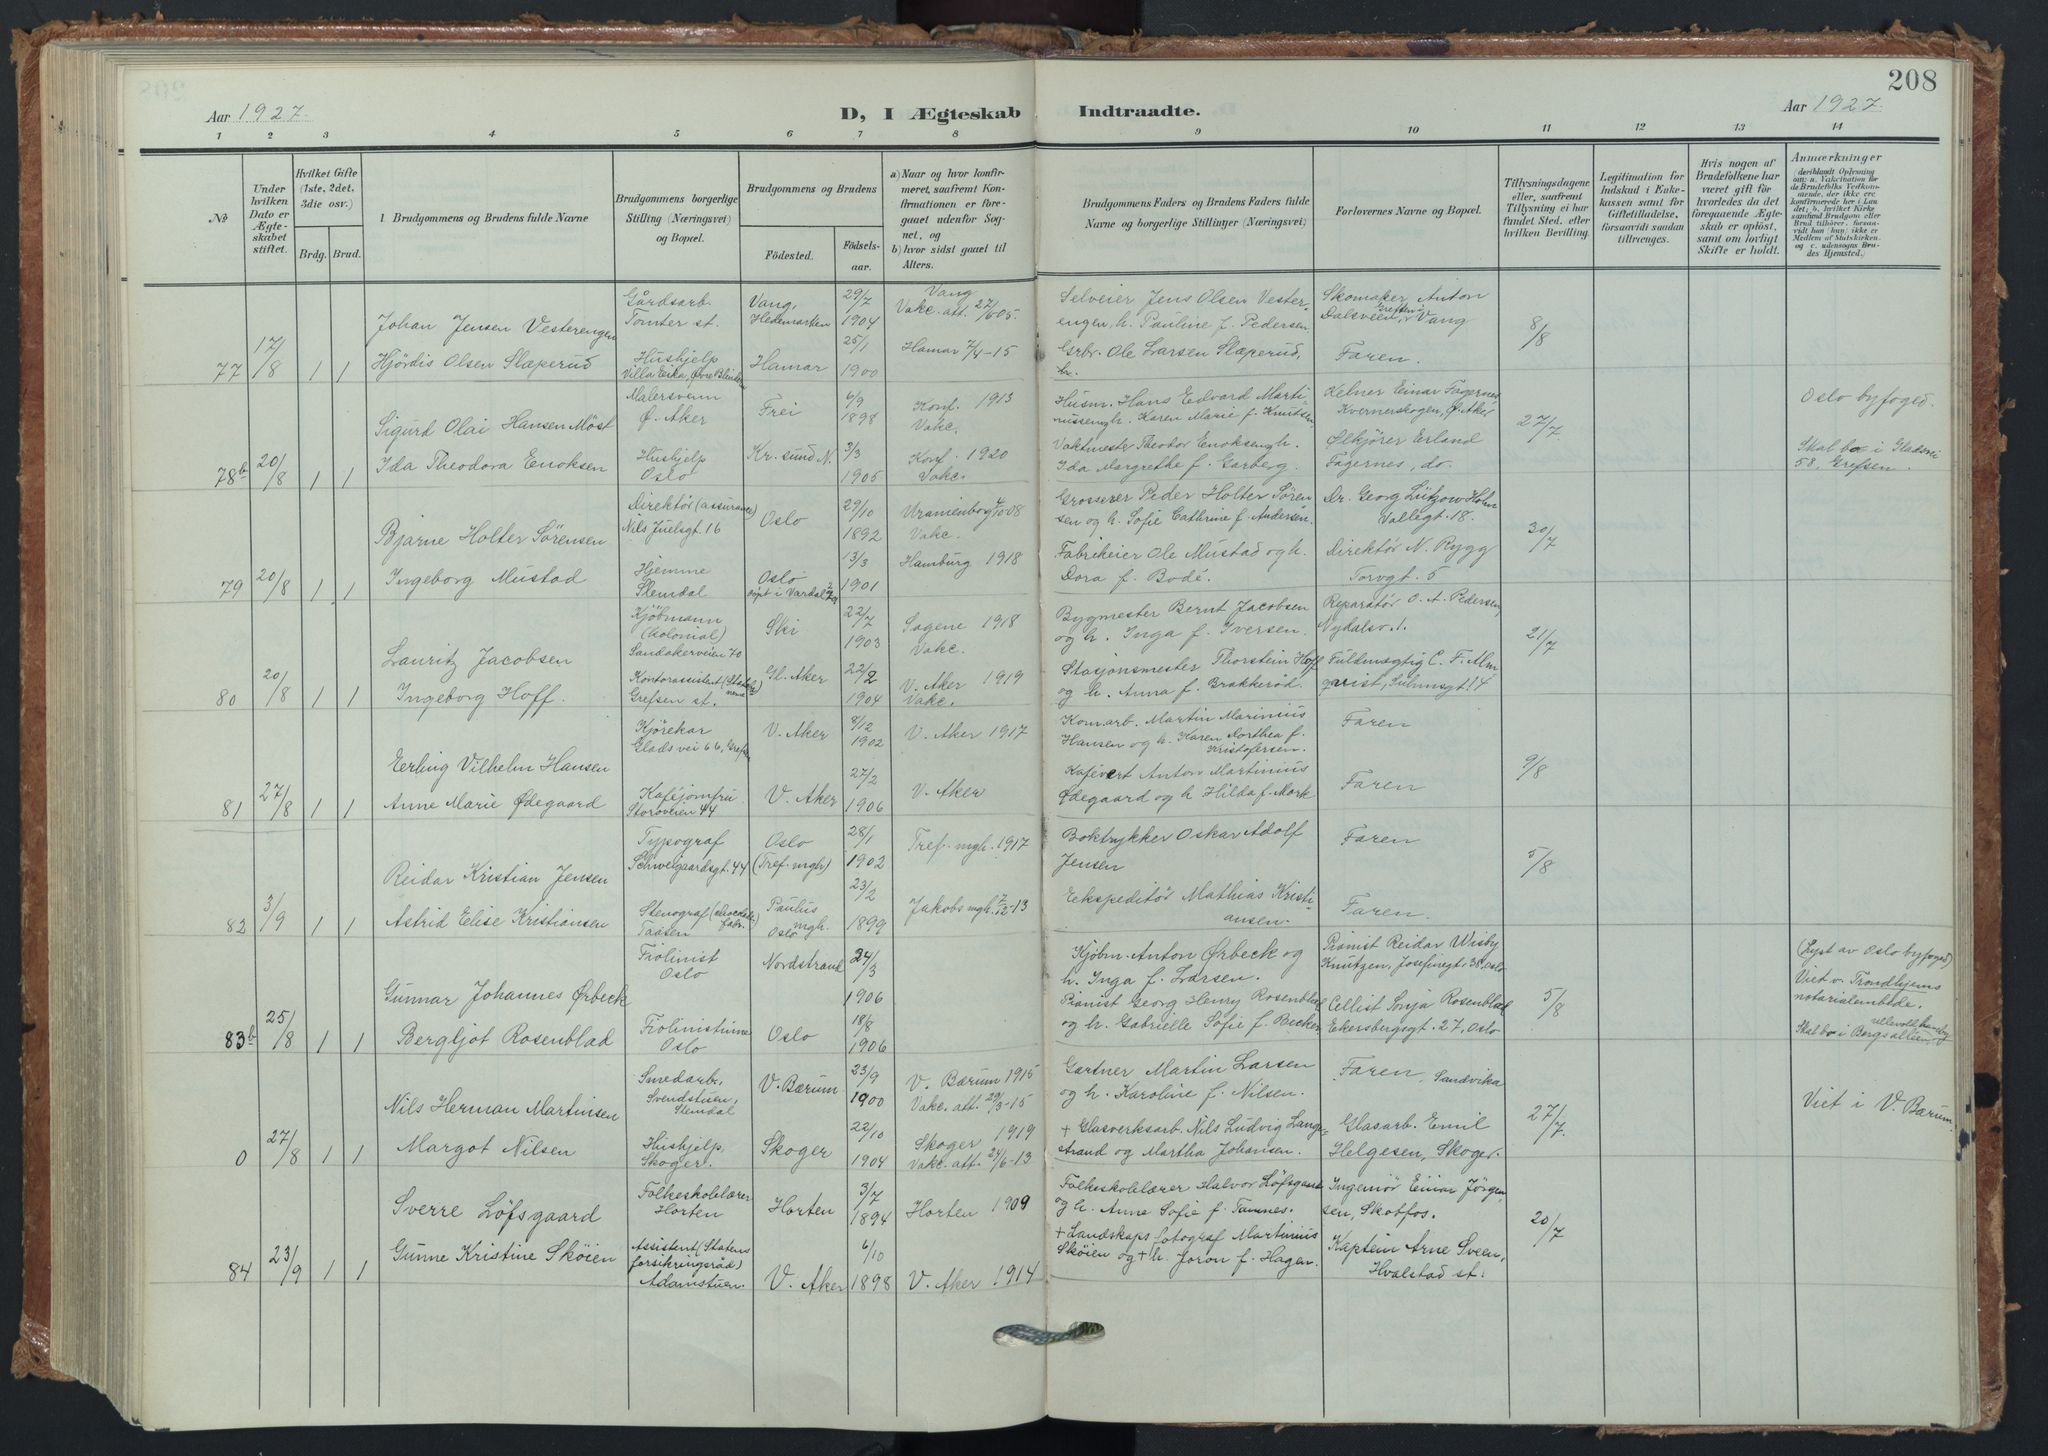 208
Aar 1927. D, I Ægteskab Indtraadte. Aar 1927.
1 2 3 4 5 6 7 8 9 10 11 12 13 14
No
Under hvilken Dato er Ægteskabet stiftet.
Hvilket Gifte (1ste, 2det, 3die osv.)
Brdg. Brud.
Brudgommens og Brudens fulde Navne
Brudgommens borgerlige Stilling (Næringsvei) og Bopæl.
Brudgommens og Brudens
Födested. Födsels-aar.
a) Naar og hvor konfirmeret, saafremt Konfirmationen er foregaaet udenfor Sognet, og
b) hvor sidst gaaet til Alters.
Brudgommens Faders og Brudens Faders fulde Navne og borgerlige Stillinger (Næringsvei)
Forlovernes Navne og Bopæl.
Tillysningsdagene eller, saafremt Tillysning ei har fundet Sted, efter hvilken Bevilling.
Legitimation for Indskud i Enkekassen samt for Giftetilladelse, forsaavidt saadan tiltrenges.
Hvis nogen af Brudefolkene har været gift för hvorledes da det foregaaende Ægteskab er oplöst, samt om lovligt Skifte er holdt.
Anmærkninger
77 17/8 1 1
Johan Jensen Vesterengen
Gårdsarb.
Tomter st.
Vang,
Hedemarken
29/7
1904
Vang
Vakc. att. 27/6 05.
Selveier Jens Olsen Vester-
engen, h. Pauline f. Pedersen.
Skomaker Anton
Dalsveen, Vang
8/8
Hjördis Olsen Slæperud
Hushjelp
Villa Eika, Øvre Blindern
Hamar
25/1
1900
Hamar 7/4-15
Grbr. Ole Larsen Slæperud,
h.
Faren.
78b 20/8 1 1
Sigurd Olai Hansen Möst
Malersvenn
Ø. Aker
Frei
6/9
1898
Konf. 1913
Vakc.
Husm. Hans Edvard Marti-
nussen og h. Karen Marie f. Knutsen
Kelner Einar Fagernes
Kvernerskogen, Ø. Aker
27/7
Oslo byfoged.
Ida Theodora Enoksen
Hushjelp
Oslo
Kr. sund N.
3/3
1905
Konf. 1920
Vakc.
Vaktmester Theodor Enoksen og h.
Ida Margrethe f. Garberg.
Ølkjører Erland
Fagernes, do.
Skal bo i Gladsvei
58, Grefsen.
79 20/8 1 1
Bjarne Holter Sörensen
Direktör (assurance)
Nils Juelsgt 16
Oslo
29/10
1892
Uranienborg 4/10-08
Vakc.
Grosserer Peder Holter Sören-
sen og h. Sofie Cathrine f. Andersen.
Dr. Georg Lützow Holm
Vallegt. 18.
30/7
Ingeborg Mustad
Hjemme
Slemdal
Oslo
döpt i Vardal
13/3
1901
Hamburg 1918
Fabrikeier Ole Mustad og h.
Dora f. Bodé.
Direktör N. Rygg
Torvgt. 5
80 20/8 1 1
Lauritz Jacobsen
Kjöbmann
(kolonial)
Sandakerveien 70
Ski
22/7
1903
Sagene 1918
Vakc.
Bygmester Bernt Jacobsen
og h. Inga f. Iversen.
Reparatör O. A. Pedersen,
Nydalsv. 1.
21/7
Ingeborg Hoff.
Kontorassistent
Grefsen st.
Gl. Aker
22/2
1904
V. Aker 1919
Vakc.
Stasjonsmester Thorstein Hoff
og h. Anna f. Brakkeröd.
Fuldmægtig C. F. Alm-
quist, Kuhnsgt. 14
81 27/8 1 1
Erling Vilhelm Hansen
Kjörekar
Glads vei 66, Grefsen
V. Aker
8/12
1902
V. Aker 1917
Kom.arb. Martin Marinius
Hansen og h. Karen Dorthea f.
Kristofersen.
Faren
9/8
Anne Marie Ødegaard
Kaféjomfru
Storoveien 44
V. Aker
27/2
1906
V. Aker
Kafévert Anton Martinius
Ødegaard og h Hilda f. Mork
Faren
82 3/9 1 1
Reidar Kristian Jensen
Typograf
Schweigaardsgt. 44
Oslo
(Tref. mgh)
28/1
1902
Tref. mgh. 1917
Boktrykker Oskar Adolf
Jensen
Faren
5/8
Astrid Elise Kristiansen
Stenograf
Taasen
Paulus
mgh. Oslo
23/2
1899
Jakobs mgh. 7/12-13
Ekspeditör Mathias Kristi-
ansen.
Faren.
83b 25/8 1 1
Gunnar Johannes Ørbeck
Fiolinist
Oslo
Nordstrand
24/3
1906
Kjöbm. Anton Ørbeck og
h. Inga f. Larsen.
Pianist Reidar Wisby
Knutzen, Josefinegt. 38, Oslo
5/8
(Lyst av Oslo byfoged)
Viet v. Trondhjems
notarialembede.
Bergljot Rosenblad
Fiolinistinne
Oslo
Oslo
18/8
1906
Pianist Georg Henry Rosenblad
og h. Gabrielle Sofie f. Becker
Cellist Sonja Rosenblad
Eckersbergsgt. 27, Oslo
Skal bo i Bergsalleen, Ullevoll haveby
0 27/8 1 1
Nils Herman Martinsen
Smedarb.
Svendstuen,
Slemdal
V. Bærum
23/9
1900
V. Bærum 1915
Vakc. att. 29/3-15
Gartner Martin Larsen
og h. Karoline f. Nilsen.
Faren, Sandvika
27/7.
Viet i V. Bærum.
Margot Nilsen
Hushjelp,
Skoger.
Skoger
22/10
1904
Skoger 1919
Vakc. att. 24/6-13
+ Glasverksarb. Nils Ludvig Lange-
strand og Martha Johansen.
Glasarb. Emil
Helgesen, Skoger.
84 23/9 1 1
Sverre Löfsgaard
Folkeskolelærer
Horten
Horten
3/7
1894
Horten 1909
Folkeskolelærer Halvor Löfsgaard
og h. Anne Sofie f. Tamnes.
Ingeniör Einar Jörgen-
sen, Skotfos.
20/7
Gunne Kristine Sköien
Assistent (Statens
forsikringsråd)
Adamstuen.
V. Aker
6/10
1898
V. Aker 1914
+ Landskapsfotograf Martinius
Sköien og + h. Joron f. Hagen.
Kaptein Arne Sveen,
Hvalstad st.